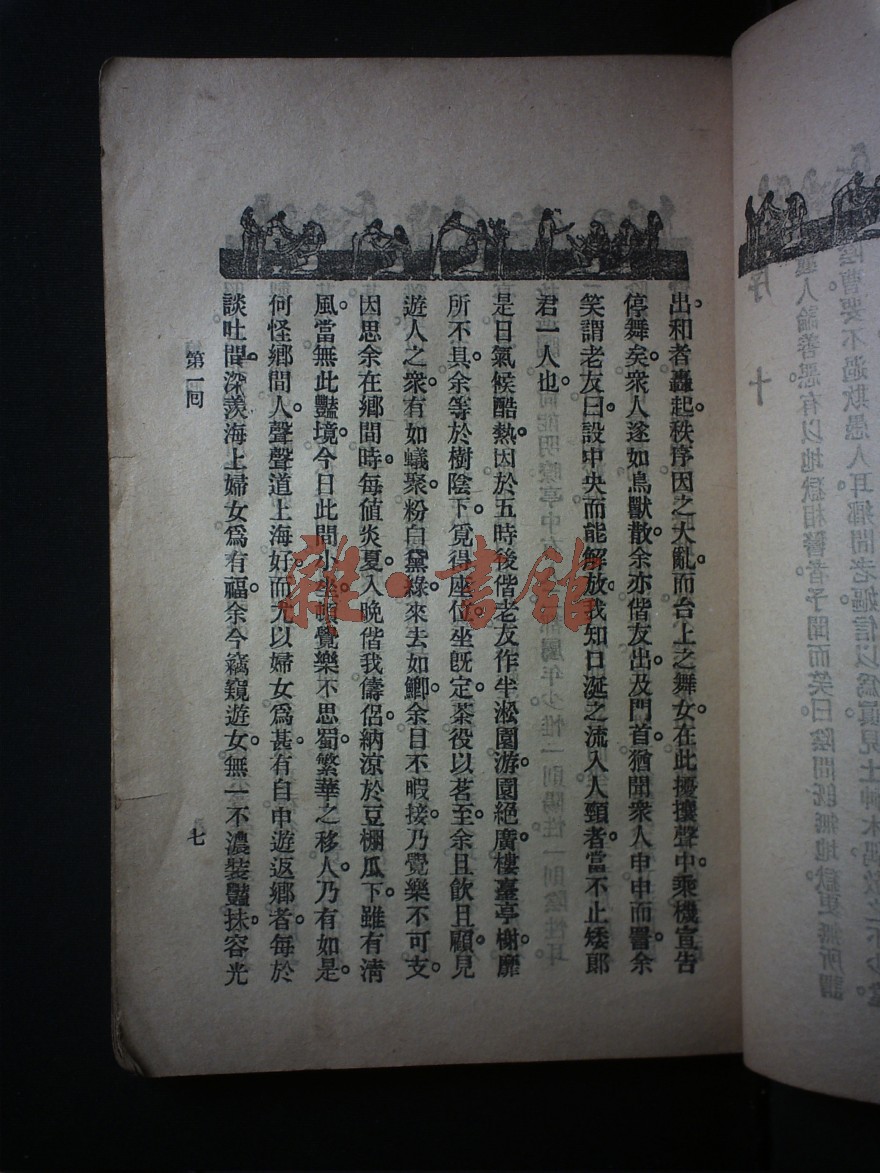 出和者轟起。秩序因之大亂。而台上之舞女。在此擾攘聲中。乘機宣告
停舞矣。衆人遂如鳥獸散。余亦偕友出。及門首。猶聞衆人申申而詈。余
笑謂老友曰。設中央而能解放。我知口涎之流入人頸者。當不止矮郎
君一人也。
是日氣候酷熱。因於五時後偕老友作半淞園游。園絕廣。樓臺亭榭。靡
所不具。余等於樹陰下。覓得座位。坐旣定。茶役以茗至。余且飲且顧。見
遊人之衆。有如蟻聚。粉白黛綠。來去如鯽。余目不暇接。乃覺樂不可支。
因思余在鄉間時。每値炎夏。入晚偕我儔侶。納涼於豆棚瓜下。雖有淸
風。當無此豔境。今日此間小坐。頓覺樂不思蜀。繁華之移人。乃有如是。
何怪鄉間人聲聲道上海好。而尤以婦女爲甚。有自申遊返鄉者。每於
談吐間。深羨海上婦女爲有福。余今竊窺遊女。無一不濃裝豔抹。容光
第一回
七
雜·書館
序
十